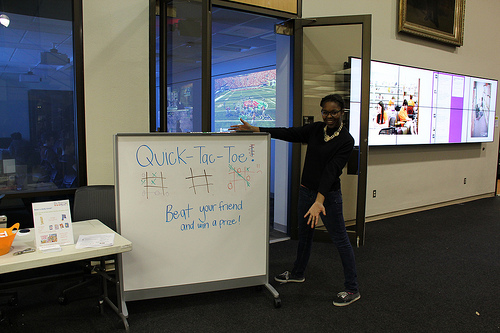 Quick-Tac-Toe!
Beat your friend
and win a prize!